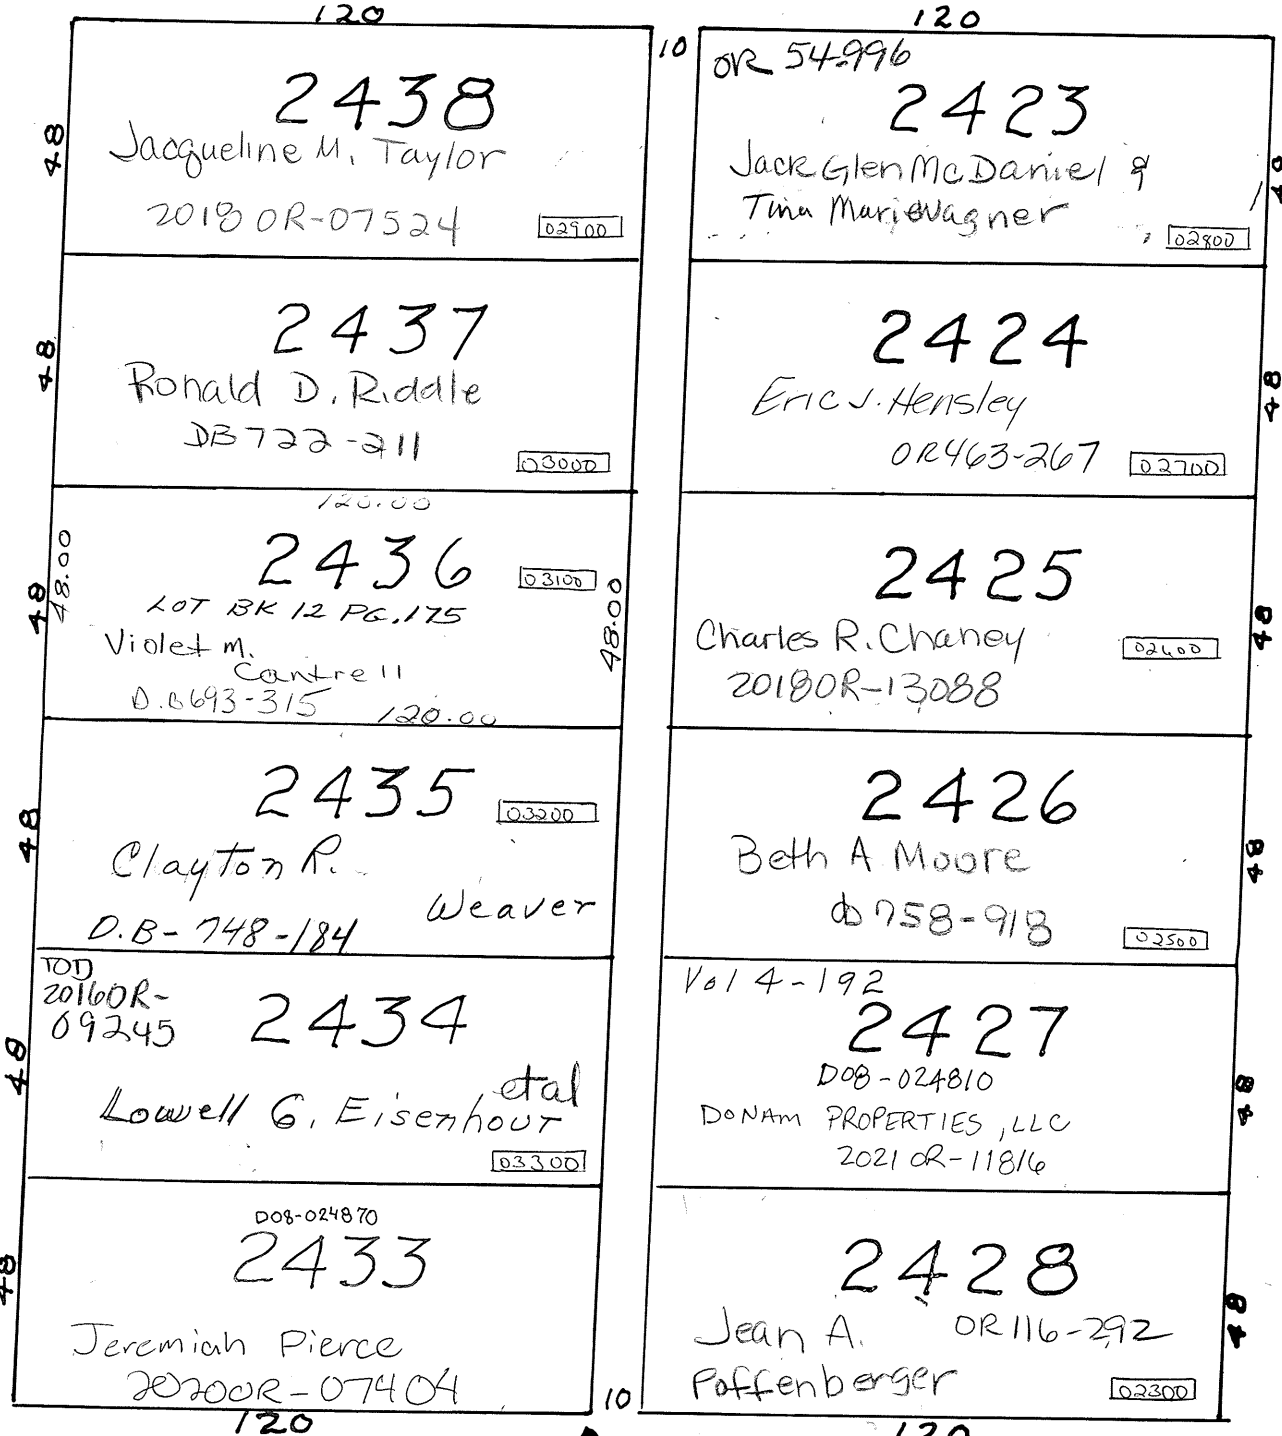 120
48
2438
Jacqueline M. Taylor
2018 OR-07524
02900
48
2437
Ronald D. Riddle
DB 722-211
03000
48
48.00
120.00
2436
03100
LOT BK 12 PG. 175
Violet M.
Cantrell
D.B 693-315
120.00
48.00
48
2435
03200
Clayton R.
Weaver
D.B-748-184
48
TOD
2016OR-
09245
2434
etal
Lowell G. Eisenhour
03300
48
D08-024870
2433
Jeremiah Pierce
2020OR-07404
120
10
10
120
OR 54-996
2423
Jack Glen McDaniel &
Tina Marie Wagner
02800
48
2424
Eric J. Hensley
OR463-267
02700
48
2425
Charles R. Chaney
02600
2018OR-13088
48
2426
Beth A Moore
D 758-918
02500
48
Vol 4-192
2427
D08-024810
DONAM PROPERTIES, LLC
2021 OR-11816
48
2428
Jean A.
OR 116-292
Poffenberger
02300
48
120